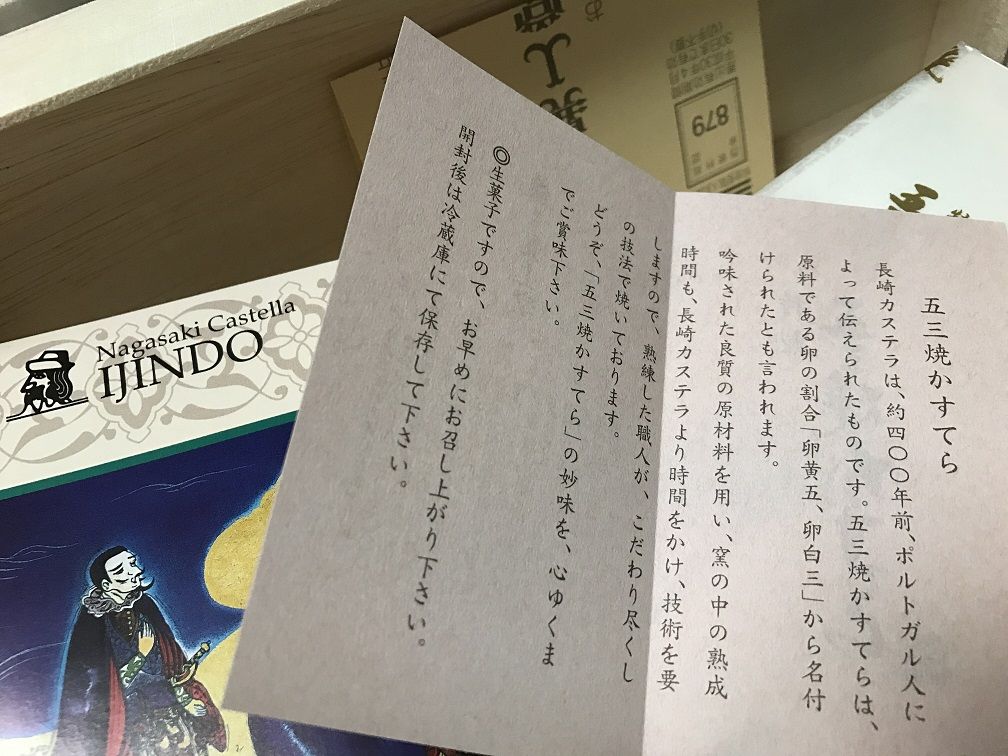 五三焼かすてら
長崎カステラは、約四〇〇年前、ポルトガル人に
よって伝えられたものです。五三焼かすてらは、
原料である卵の割合「卵黄五、卵白三」から名付
けられたとも言われます。
吟味された良質の原材料を用い、窯の中の熟成
時間も、長崎カステラより時間をかけ、技術を要
しますので、熟練した職人が、こだわり尽くし
の技法で焼いております。
どうぞ、「五三焼かすてら」の妙味を、心ゆくま
でご賞味下さい。
◎生菓子ですので、お早めにお召し上がり下さい。
開封後は冷蔵庫にて保存して下さい。
Nagasaki Castella
IJINDO
879
差出有効期間
平成30年4月
30日まで有効
(切手不要)